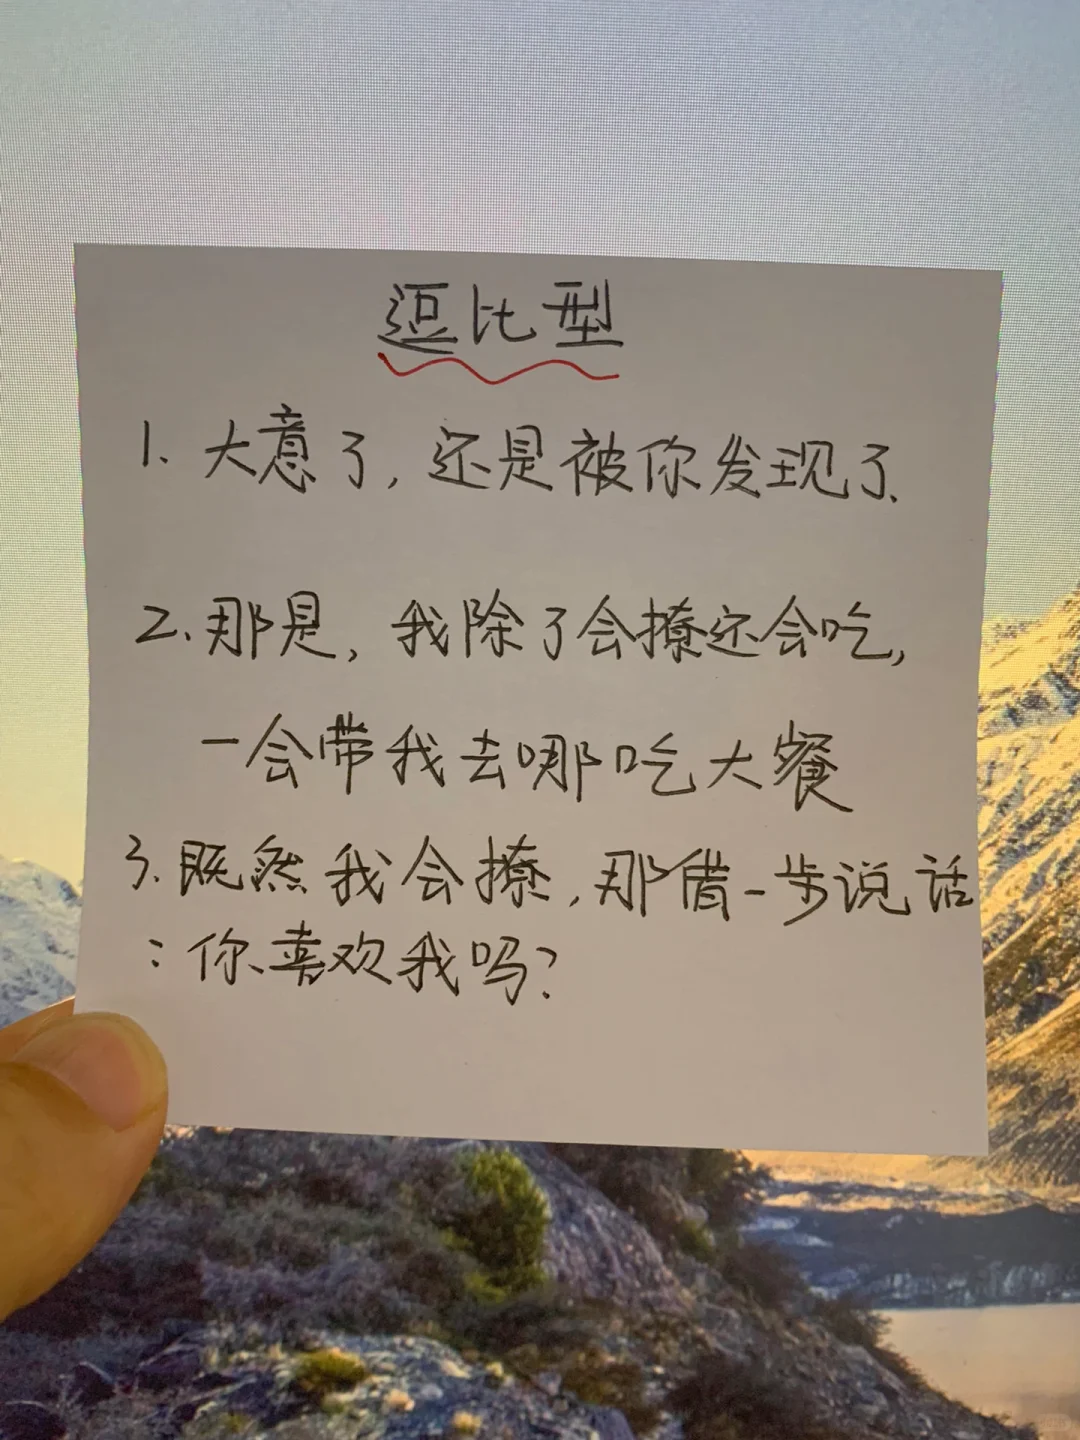 逗比型
1. 大意了, 还是被你发现了.
2. 那是, 我除了会撩还会吃,
一会带我去哪吃大餐
3. 既然我会撩, 那借一步说话
: 你喜欢我吗?